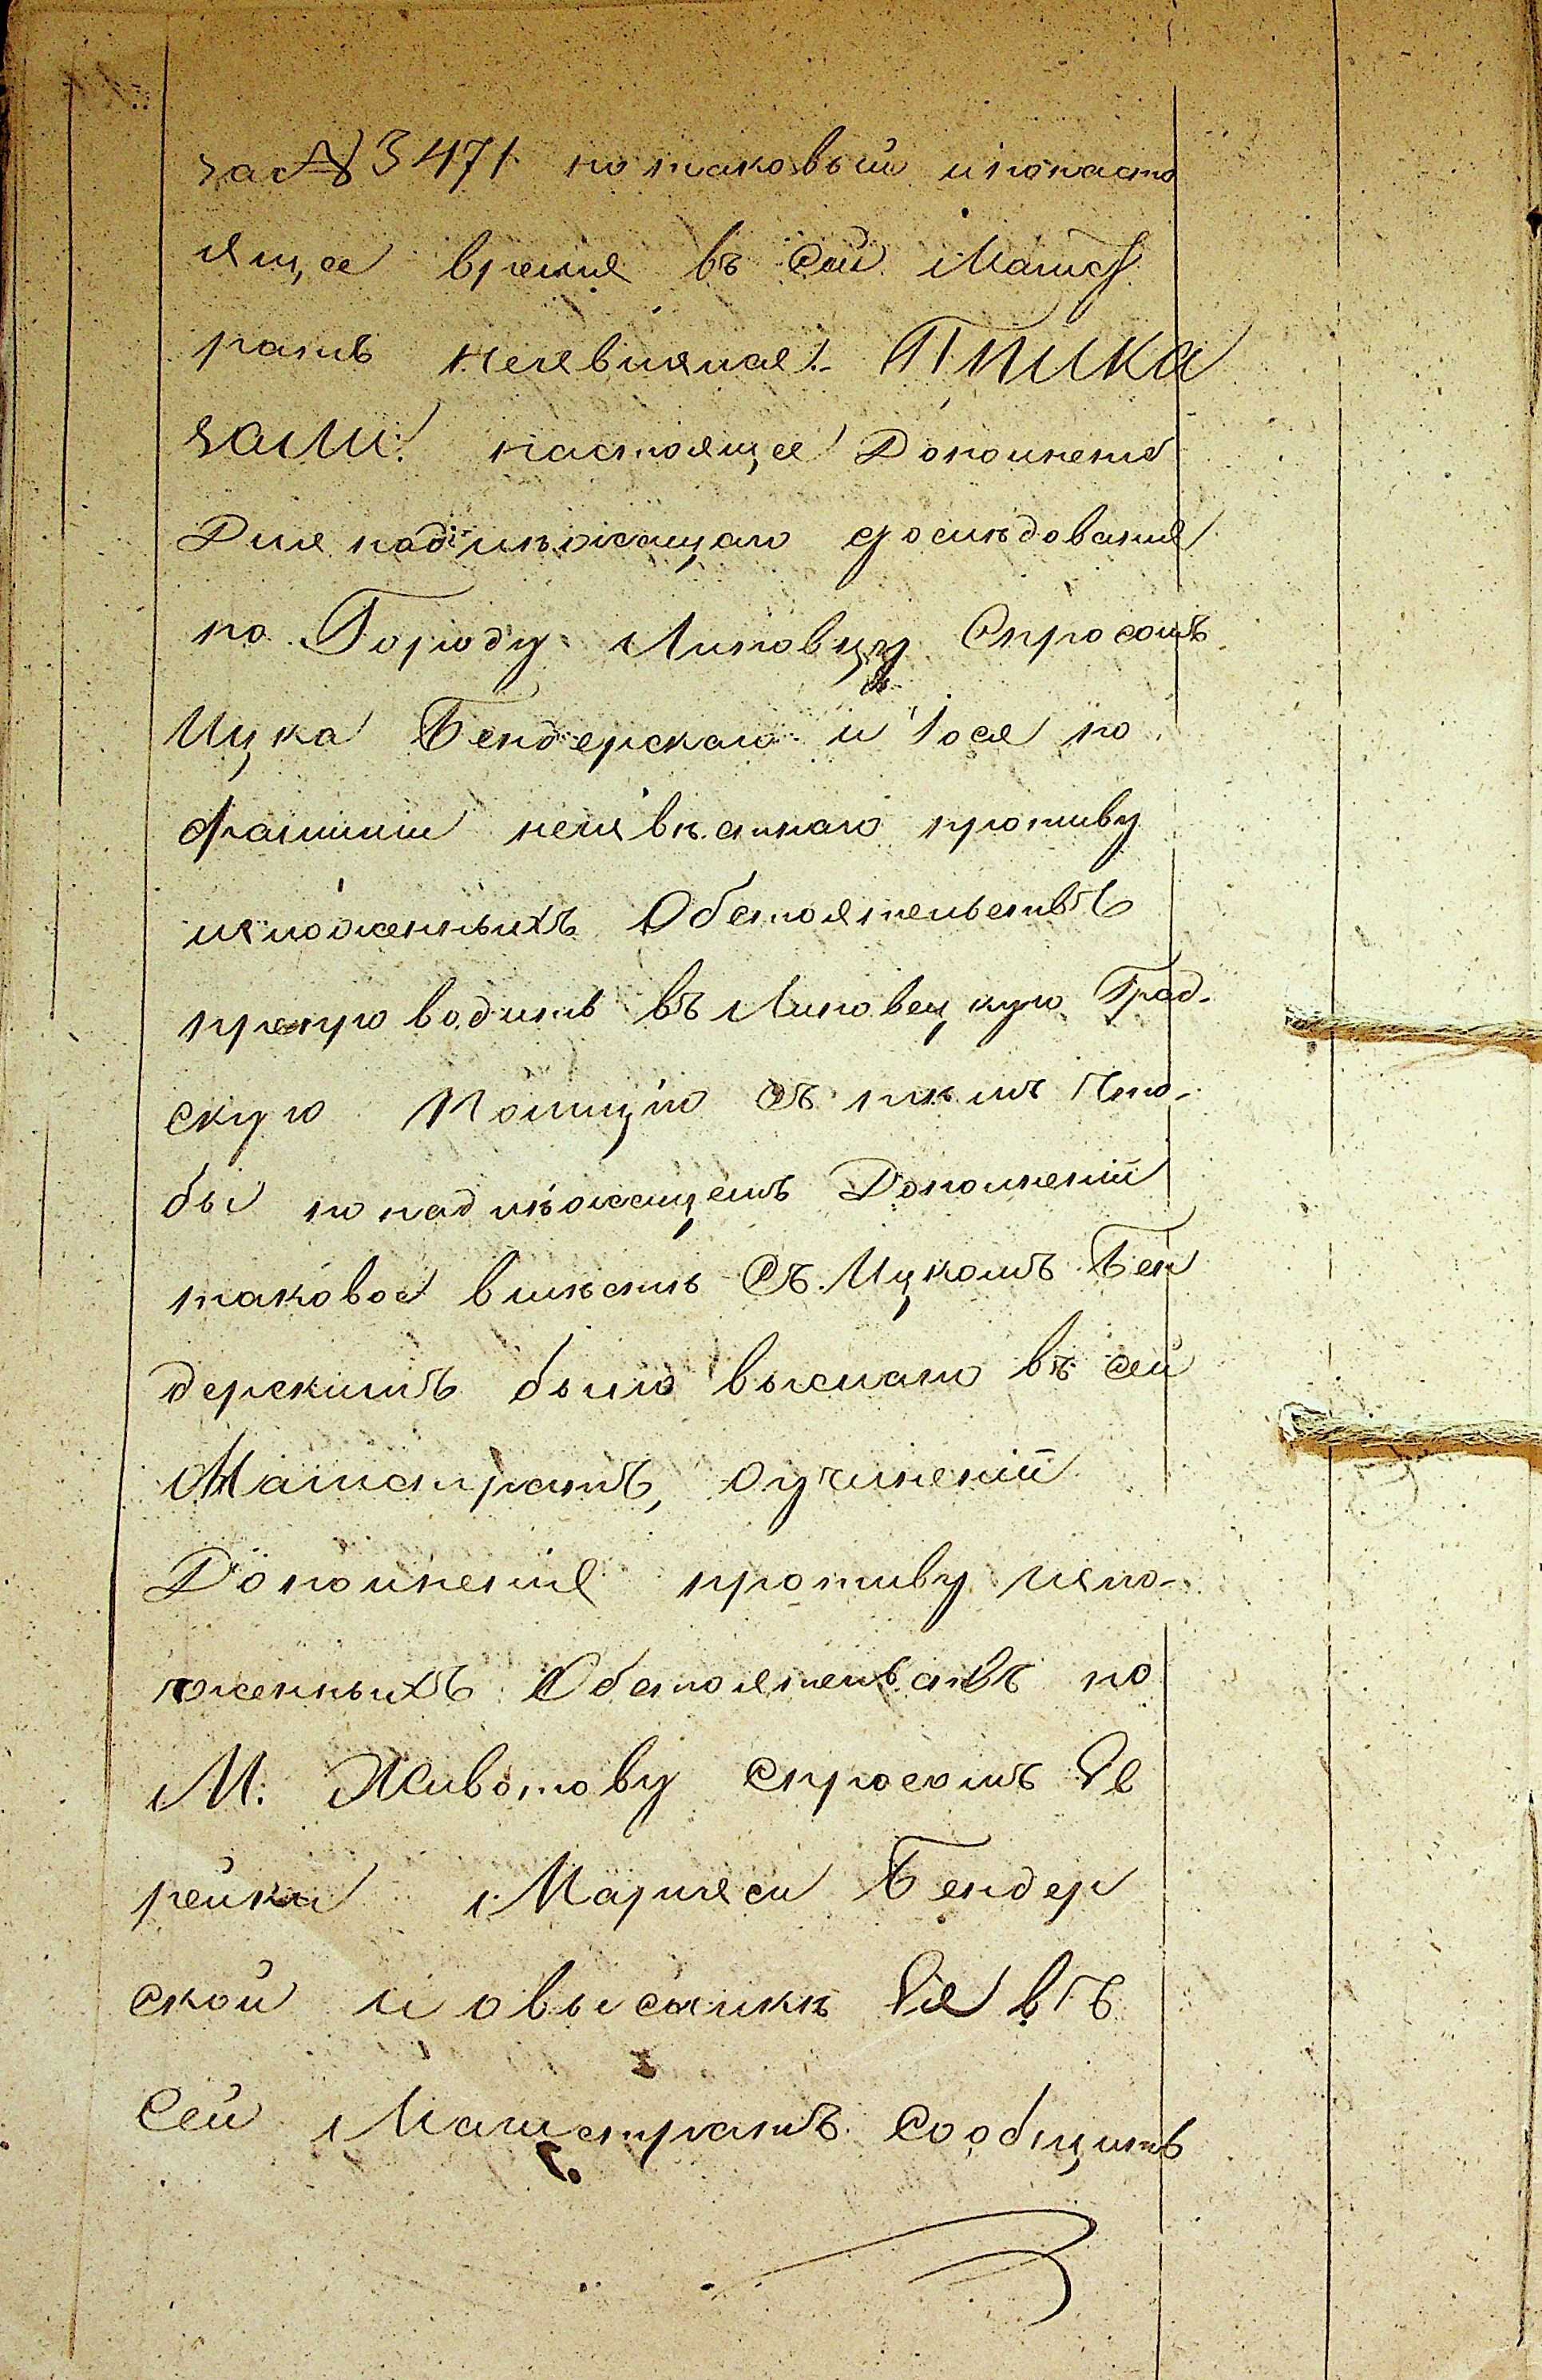 за № 3471 но таковый и понасто
ящее время въ сей Магист
ратъ неявилася. Прика
зали: настоящее Дополненіе
Для надлежащаго дослѣдованія
по Городу Липовцу Спросомъ
Ицка Бендерскаго и Іося по
фамиліи неизвѣстнаго противу
изложенныхъ Обстоятельствъ
препроводить въ Липовецкую Град-
скую Полицію съ тѣмъ что-
бы по надлежащемъ Дополненіи
таковое вмѣстѣ Съ Ицкомъ Бен
дерскимъ было выслано въ сей
Магистратъ, Оучиненіи
Дополненія противу изло-
женныхъ Обстоятельствъ по
М. Животову спросомъ Ев
рейки Маріяси Бендер
ской и овысылкѣ Ея въ
Сей Магистратъ Сообщить